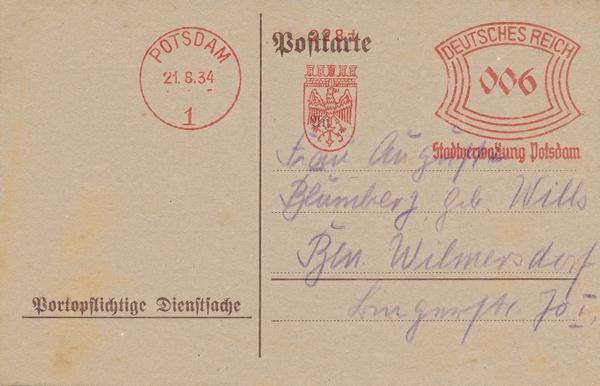 POTSDAM
21.8.34
1
Postkarte
DEUTSCHES REICH
006
Stadtverwaltung Potsdam
An
Frau Auguste
Blumberg geb. Wills
Bln. Wilmersdorf
I.
Portopflichtige Dienstsache